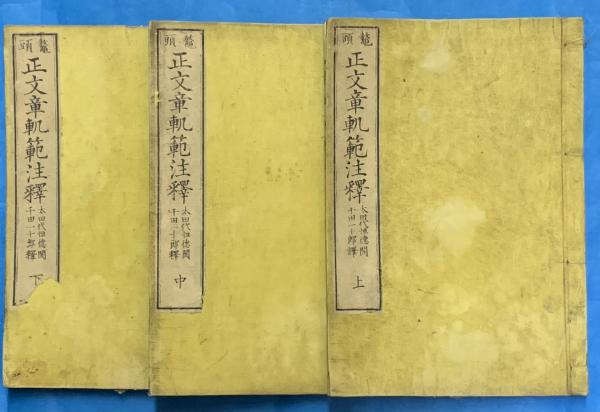 鼇頭
正文章軌範注釋
太田代恒德閲
千田一十郎譯
上
鼇頭
正文章軌範注釋
太田代恒德閲
千田一十郎釋
中
鼇頭
正文章軌範注釋
太田代恒德閲
千田一十郎釋
下